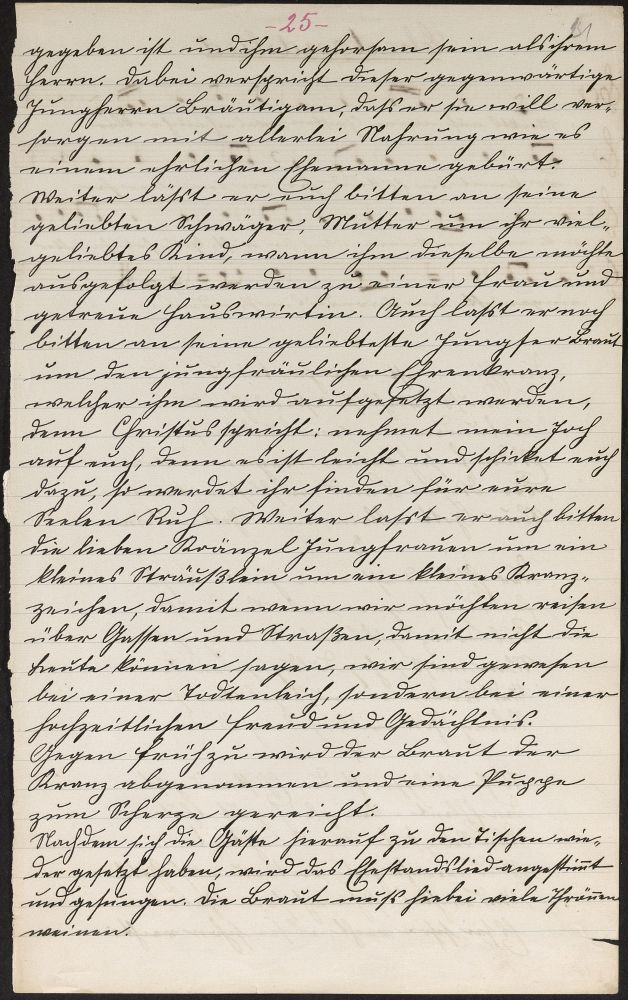 -25-
gegeben ist und ihm gehorsam sein als ihrem
Herrn. Dabei verspricht dieser gegenwärtige
Jungherrn Bräutigam, daß er sie will ver-
sorgen mit allerlei Nahrung wie es
einem ehrlichen Ehemanne gebürt.
Weiter läßt er euch bitten an seine
geliebten Schwäger, Mutter um ihr viel-
geliebtes Kind, wann ihm dieselbe möchte
ausgefolgt werden zu einer Frau und
getreue Hauswirtin. Auch lasst er noch
bitten an seine geliebteste Jungfer Braut
um den jungfräulichen Ehrenkranz,
welcher ihm wird aufgesetzt werden,
denn Christus spricht: nehmet mein Joch
auf euch, denn es ist leicht und schicket euch
dazu, so werdet ihr finden für eure
Seelen Ruh. Weiter lasst er auch bitten
die lieben Kränzel Jungfrauen um ein
kleines Sträußlein um ein kleines Kranz-
zeichen, damit wenn wir möchten reisen
über Gassen und Straßen, damit nicht die
Leute können sagen, wir sind gewesen
bei einer Todtenleich, sondern bei einer
hochzeitlichen Freud und Gedächtnis.
Gegen früh zu wird der Braut der
Kranz abgenommen und eine Puppe
zum Scherze gereicht.
Nachdem sich die Gäste hierauf zu den Tischen wie-
der gesetzt haben, wird das Ehestandslied angestimmt
und gesungen. Die Braut muß hiebei viele Thränen
weinen.